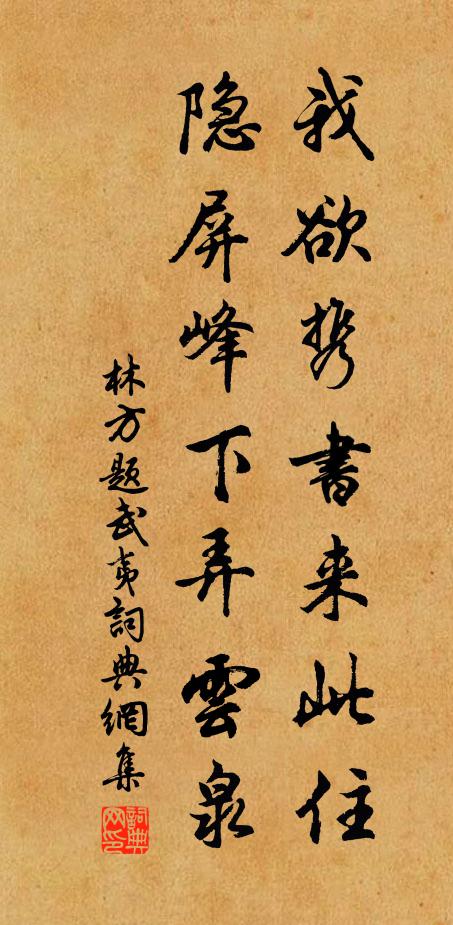 我欲携書来此住
隐屏峰下弄雲泉
林方題武夷詞典網集
詞典网印